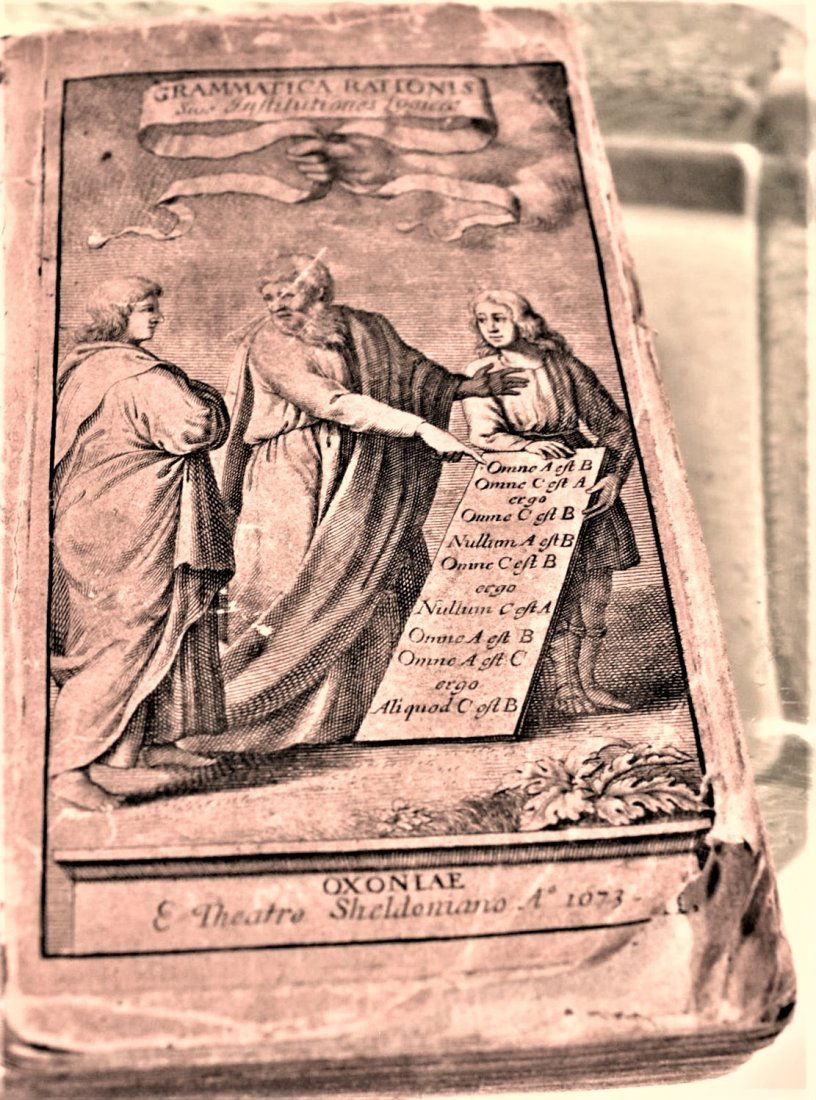 GRAMMATICA RATIONIS
Sive Institutiones Logicæ
Omne A est B
Omne C est A
ergo
Omne C est B
Nullum A est B
Omne C est B
ergo
Nullum C est A
Omne A est B
Omne A est C
ergo
Aliquod C est B
OXONIAE
E Theatro Sheldoniano Aº 1673